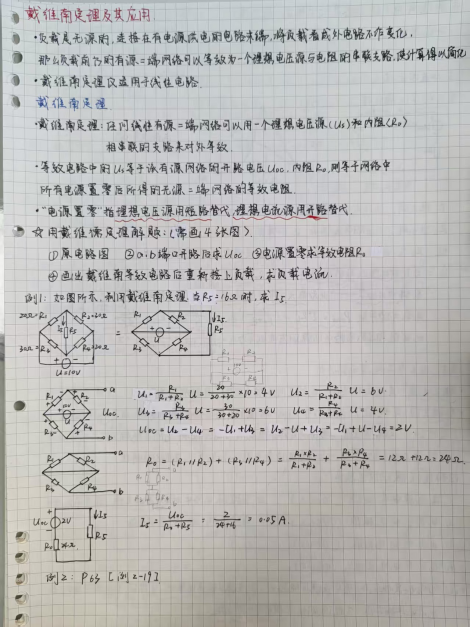 戴维南定理及其应用
·负载是无源的,连接在有电源供电的电路末端,将负载看成外电路不作变化,
那么负载前方的有源二端网络可以等效为一个理想电压源与电阻的串联支路,使计算得以简化
·戴维南定理仅适用于线性电路.
戴维南定理
·戴维南定理:任何线性有源二端网络可以用一个理想电压源(Us)和内阻(R₀)
相串联的支路来对外等效.
·等效电路中的Us等于该有源网络的开路电压Uoc.内阻R₀则等于网络中
所有电源置零后所得的无源二端网络的等效电阻.
·"电源置零"指理想电压源用短路替代,理想电流源用开路替代.
☆用戴维南定理解题:(需画4张图)
①原电路图 ②a.b端口开路后求Uoc ③电源置零求等效电阻R₀
④画出戴维南等效电路后重新接上负载,求负载电流.
例1:如图所示,利用戴维南定理 当R5=16Ω时,求I5
20Ω=R1 R2=30Ω I5 R5 30Ω=R3 R4=20Ω U=10V
= R1 R2 U R3 R4 I5 R5
R1 R2 10V R3 R4 a Uoc b
U1=R1/(R1+R2) U=20/(20+30)×10=4V U2=R2/(R1+R2) U=6V.
U3=R3/(R3+R4) U=30/(30+20)×10=6V U4=R4/(R3+R4) U=4V.
Uoc=U2-U4=-U1+U3=U2-U+U3=-U1+U-U4=2V
R1 R2 R3 R4 a b
R₀=(R1//R2)+(R3//R4)=R1×R2/(R1+R2)+R3×R4/(R3+R4)=12Ω+12Ω=24Ω
Uoc 2V R₀ 24Ω I5 R5
I5=Uoc/(R₀+R5)=2/(24+16)=0.05A.
例2:P63 [例2-19]